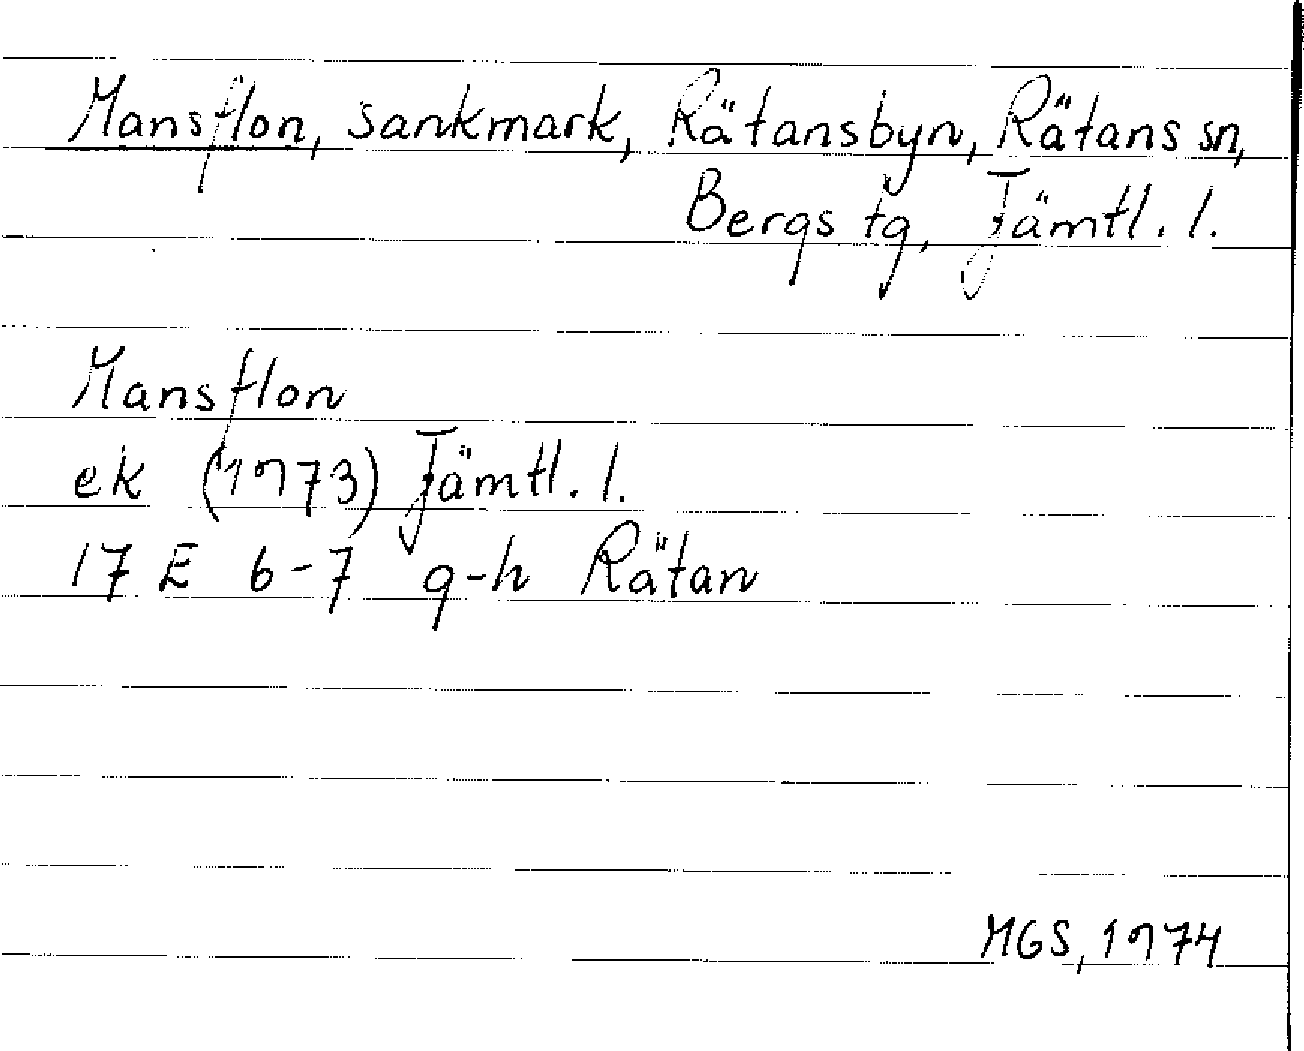 Mansflon, sankmark, Rätansbyn, Rätans sn,
Bergs tg, Jämtl. l.
Mansflon
ek (1973) Jämtl. l.
17 E 6-7 g-h Rätan
MGS, 1974